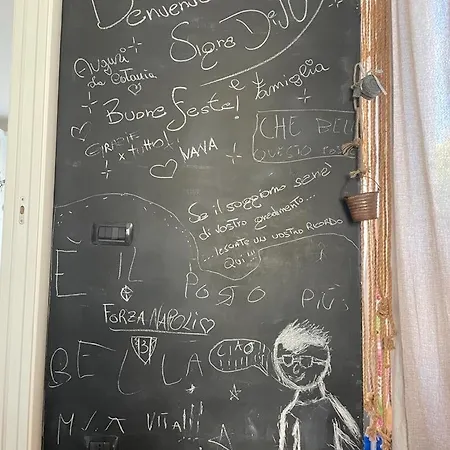 Benvenut
Sig.ra Di
e famiglia
Auguri
da Catania
Buone feste!
GRAZIE
x tutto!
NANA
CHE BEL
QUESTO POST
Se il soggiorno sarà
di vostro gradimento...
...lasciate un vostro ricordo
QUI!!!
È IL POSTO PIÙ
FORZA NAPOLI
3
BELLA
CIAO
MIA VITA!!!!